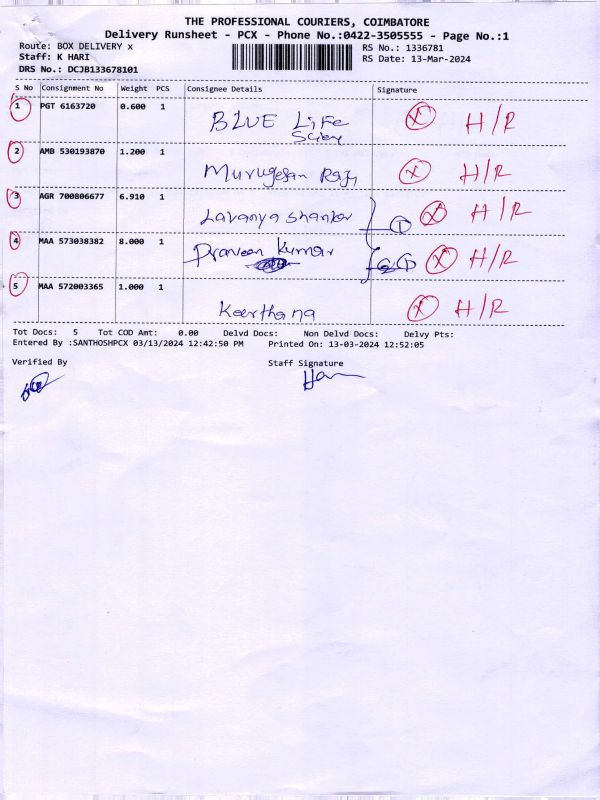 THE PROFESSIONAL COURIERS, COIMBATORE
Delivery Runsheet - PCX - Phone No.:0422-3505555 - Page No.:1
Route: BOX DELIVERY x RS No.: 1336781
Staff: K HARI RS Date: 13-Mar-2024
DRS No.: DCJB133678101
S No Consignment No Weight PCS Consignee Details Signature
1 PGT 6163720 0.600 1 BLUE Life X H/R
2 AMB 530193870 1.200 1 Murugesan Raj X H/R
3 AGR 700806677 6.910 1 Lavanya Shankar 1 X H/R
4 MAA 573038382 8.000 1 Praveen Kumar X H/R
5 MAA 572003365 1.000 1 Keerthana X H/R
Tot Docs: 5 Tot COD Amt: 0.00 Delvd Docs: Non Delvd Docs: Delvy Pts:
Entered By :SANTHOSHPCX 03/13/2024 12:42:50 PM Printed On: 13-03-2024 12:52:05
Verified By Staff Signature